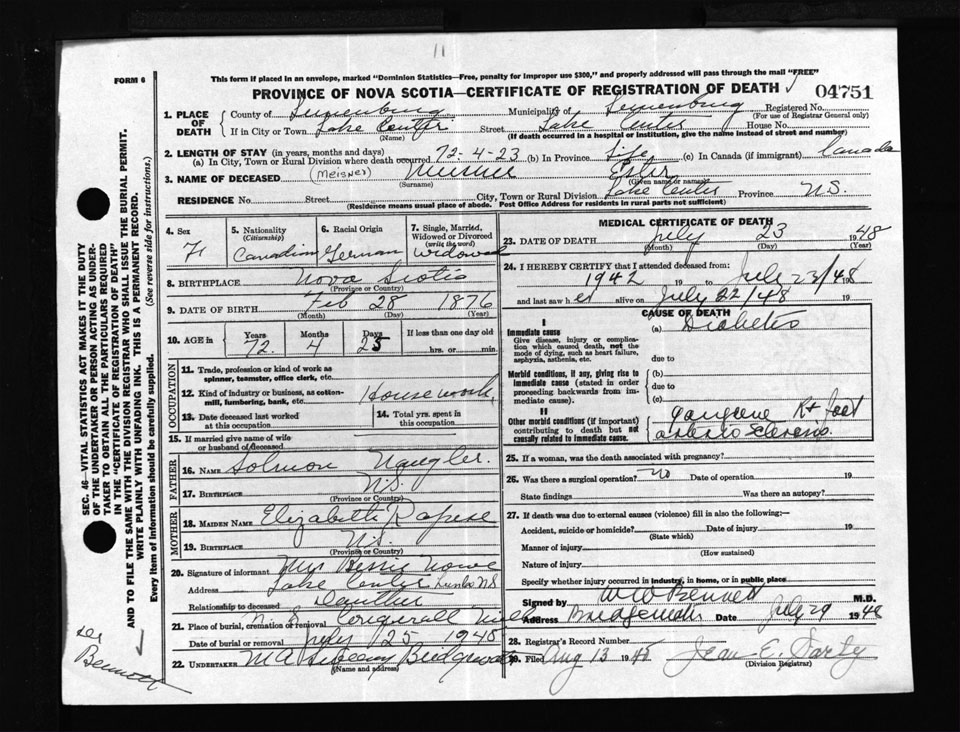 11
FORM 6
This form if placed in an envelope, marked "Dominion Statistics—Free, penalty for improper use $300," and properly addressed will pass through the mail "FREE"
PROVINCE OF NOVA SCOTIA—CERTIFICATE OF REGISTRATION OF DEATH 04751
1. PLACE OF DEATH
County of Lunenburg Municipality of Lunenburg Registered No.
(For use of Registrar General only)
If in City or Town Lake Center Street Lake Center House No.
(Name) (If death occurred in a hospital or institution, give the name instead of street and number)
2. LENGTH OF STAY (in years, months and days)
(a) In City, Town or Rural Division where death occurred 72-4-23 (b) In Province Life (c) In Canada (if immigrant) Canada
3. NAME OF DECEASED (Meisner) Ester
(Surname) (Given name or names)
RESIDENCE No. Street City, Town or Rural Division Lake Center Province N.S.
(Residence means usual place of abode. Post Office Address for residents in rural parts not sufficient)
4. Sex 5. Nationality (Citizenship) 6. Racial Origin 7. Single, Married, Widowed or Divorced (write the word)
Canadian German Widowed
8. BIRTHPLACE Nova Scotia
(Province or Country)
9. DATE OF BIRTH Feb 28 1876
(Month) (Day) (Year)
10. AGE in Years Months Days If less than one day old
72 4 25 hrs. or min.
OCCUPATION
11. Trade, profession or kind of work as spinner, teamster, office clerk, etc.
12. Kind of industry or business, as cotton-mill, lumbering, bank, etc. Housework
13. Date deceased last worked at this occupation
14. Total yrs. spent in this occupation
15. If married give name of wife or husband of deceased
FATHER
16. NAME Solmon Naugler.
17. BIRTHPLACE N.S.
(Province or Country)
MOTHER
18. MAIDEN NAME Elizabeth
19. BIRTHPLACE N.S.
(Province or Country)
20. Signature of informant Mrs Bessie Nowe
Address Lake Center Lunbr N.S
Relationship to deceased Daughter
21. Place of burial, cremation or removal Conquerall Mills
Date of burial or removal July 25 1948
22. UNDERTAKER M A Sweeny Bridgewater
(Name and address)
MEDICAL CERTIFICATE OF DEATH
23. DATE OF DEATH July 23 1948
(Month) (Day) (Year)
24. I HEREBY CERTIFY that I attended deceased from:
1942 19 to July 23/48 19
and last saw her alive on July 22/48 19
CAUSE OF DEATH
I
Immediate cause (a) Diabetes
Give disease, injury or complication which caused death, not the mode of dying, such as heart failure, asphyxia, asthenia, etc.
due to
Morbid conditions, if any, giving rise to immediate cause (stated in order proceeding backwards from immediate cause).
(b)
due to
(c)
II
Other morbid conditions (if important) contributing to death but not causally related to immediate cause.
Gangrene Rt foot
arterio Sclerosis
25. If a woman, was the death associated with pregnancy?
26. Was there a surgical operation? no Date of operation 19
State findings Was there an autopsy?
27. If death was due to external causes (violence) fill in also the following:—
Accident, suicide or homicide? Date of injury 19
(State which)
Manner of injury
(How sustained)
Nature of injury
Specify whether injury occurred in industry, in home, or in public place
Signed by W W Bennett M.D.
Bridgewater Date July 29 1948
28. Registrar's Record Number
29. Filed Aug 13 1948 Jean E.
(Division Registrar)
SEC. 46—VITAL STATISTICS ACT MAKES IT THE DUTY
OF THE UNDERTAKER OR PERSON ACTING AS UNDER-
TAKER TO OBTAIN ALL THE PARTICULARS REQUIRED
IN THE "CERTIFICATE OF REGISTRATION OF DEATH"
AND TO FILE THE SAME WITH THE DIVISION REGISTRAR WHO SHALL ISSUE THE BURIAL PERMIT.
WRITE PLAINLY WITH UNFADING INK. THIS IS A PERMANENT RECORD.
Every item of information should be carefully supplied. (See reverse side for instructions.)
Bennett